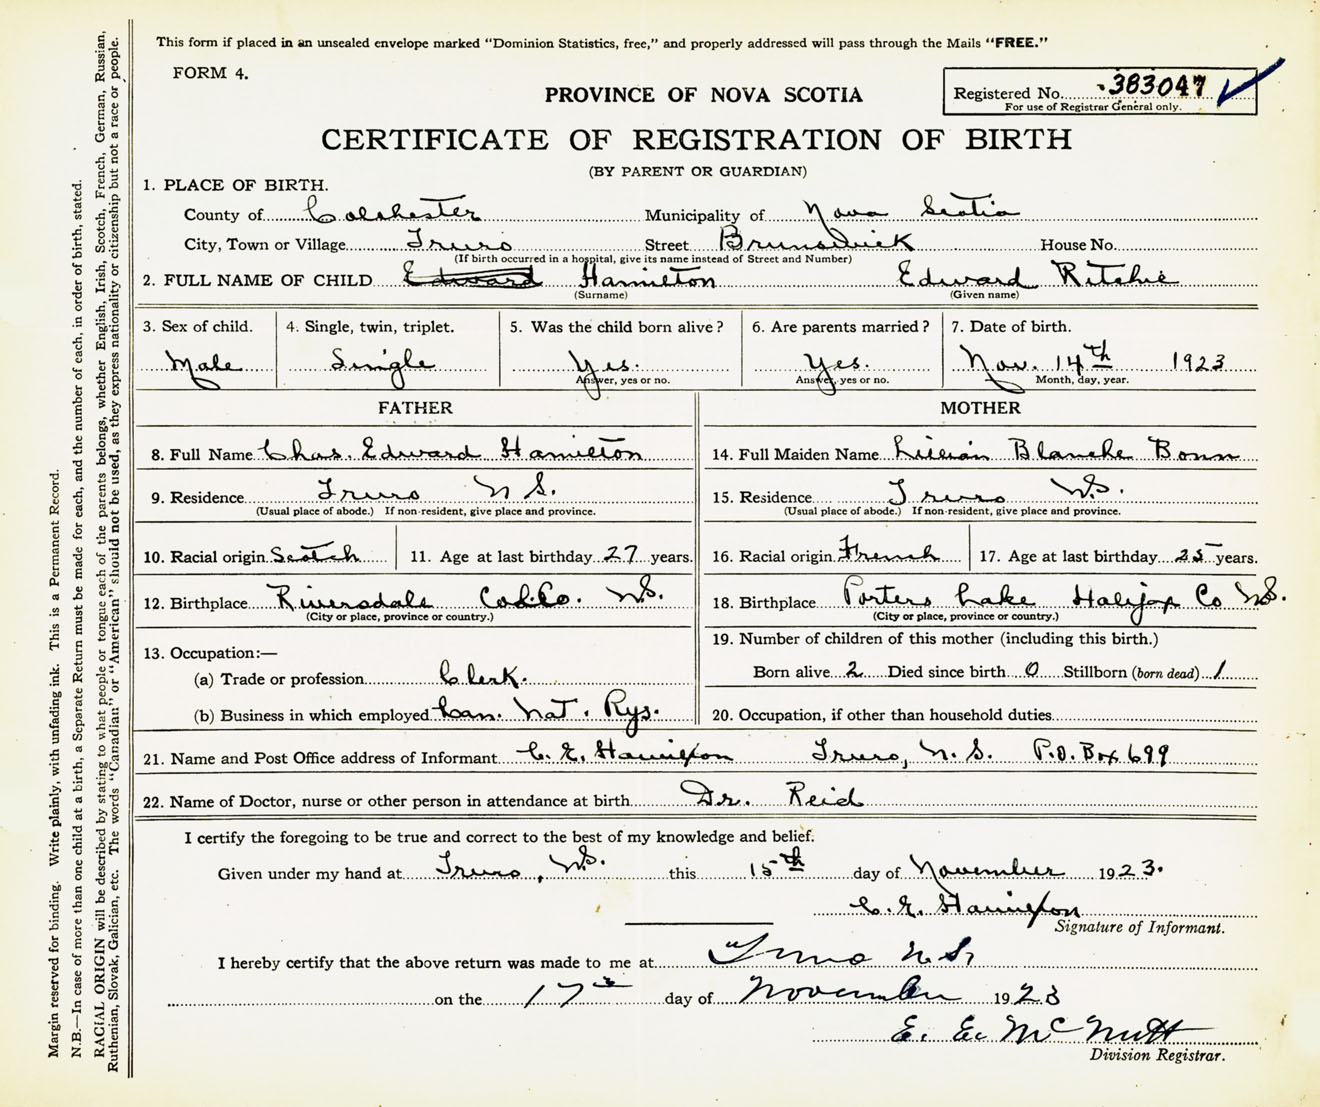 This form if placed in an unsealed envelope marked "Dominion Statistics, free," and properly addressed will pass through the Mails "FREE."
FORM 4.
Registered No. 383047
For use of Registrar General only.
PROVINCE OF NOVA SCOTIA
CERTIFICATE OF REGISTRATION OF BIRTH
(BY PARENT OR GUARDIAN)
1. PLACE OF BIRTH.
County of Colchester Municipality of Nova Scotia
City, Town or Village Truro Street Brunswick House No.
(If birth occurred in a hospital, give its name instead of Street and Number)
2. FULL NAME OF CHILD Edward Hamilton Edward Ritchie
(Surname) (Given name)
3. Sex of child. 4. Single, twin, triplet. 5. Was the child born alive? 6. Are parents married? 7. Date of birth.
Male Single Yes. Yes. Nov. 14th 1923
Answer, yes or no. Answer, yes or no. Month, day, year.
FATHER
8. Full Name Chas. Edward Hamilton
9. Residence Truro N.S.
(Usual place of abode.) If non-resident, give place and province.
10. Racial origin Scotch 11. Age at last birthday 27 years.
12. Birthplace Riversdale Col. Co. N.S.
(City or place, province or country.)
13. Occupation:—
(a) Trade or profession Clerk.
(b) Business in which employed Can. Nat. Rys.
MOTHER
14. Full Maiden Name Lillian Blanche Bonn
15. Residence Truro N.S.
(Usual place of abode.) If non-resident, give place and province.
16. Racial origin French 17. Age at last birthday 25 years.
18. Birthplace Porters Lake Halifax Co N.S.
(City or place, province or country.)
19. Number of children of this mother (including this birth.)
Born alive 2 Died since birth 0 Stillborn (born dead) 1
20. Occupation, if other than household duties
21. Name and Post Office address of Informant C. E. Hamilton Truro, N.S. P.O. Box 699
22. Name of Doctor, nurse or other person in attendance at birth Dr. Reid
I certify the foregoing to be true and correct to the best of my knowledge and belief.
Given under my hand at Truro, N.S. this 15th day of November 1923.
C. E. Hamilton
Signature of Informant.
I hereby certify that the above return was made to me at Truro N.S.
on the 17th day of November 1923
E. E. McNutt
Division Registrar.
Margin reserved for binding. Write plainly, with unfading ink. This is a Permanent Record.
N.B.—In case of more than one child at a birth, a Separate Return must be made for each, and the number of each, in order of birth, stated.
RACIAL ORIGIN will be described by stating to what people or tongue each of the parents belongs, whether English, Irish, Scotch, French, German, Russian,
Ruthenian, Slovak, Galician, etc. The words "Canadian" or "American" should not be used, as they express nationality or citizenship but not a race or people.